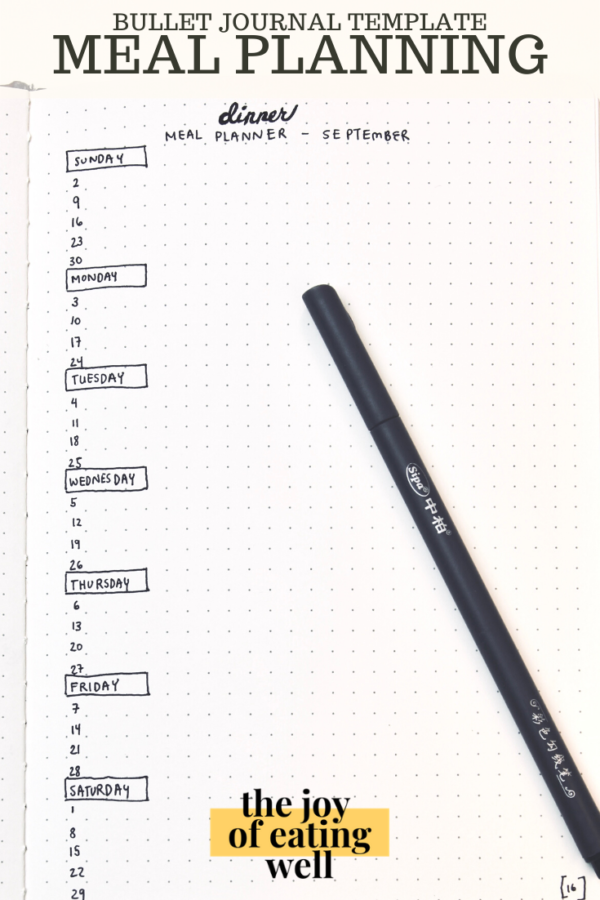 BULLET JOURNAL TEMPLATE
MEAL PLANNING
dinner
MEAL PLANNER - SEPTEMBER
SUNDAY
2
9
16
23
30
MONDAY
3
10
17
24
TUESDAY
4
11
18
25
WEDNESDAY
5
12
19
26
THURSDAY
6
13
20
27
FRIDAY
7
14
21
28
SATURDAY
1
8
15
22
29
Sipa® 中柏®
彩色勾线笔
the joy
of eating
well
[16]